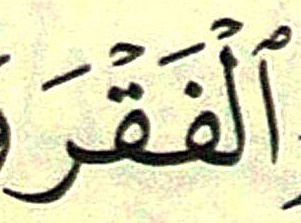 ٱلْفَقْرَ